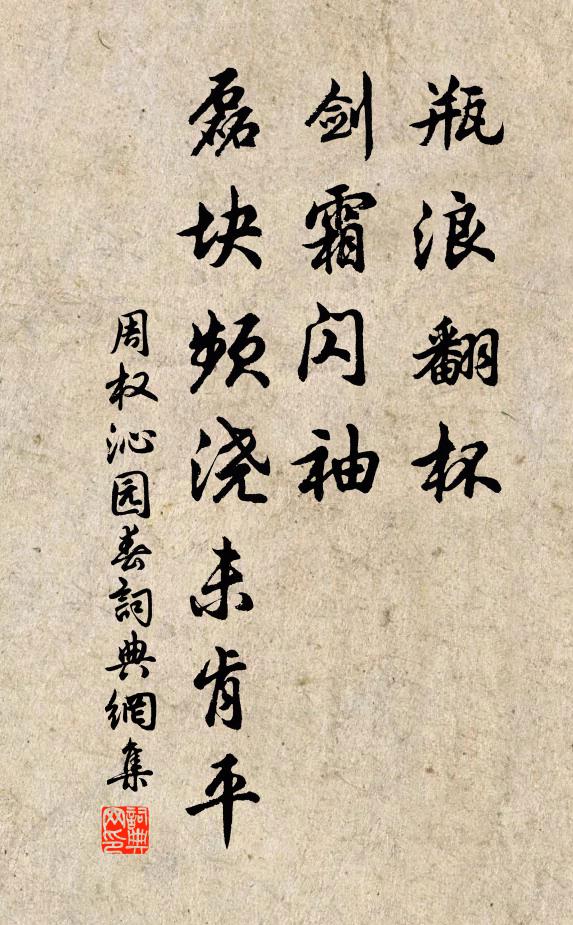 瓶浪翻杯
剑霜闪袖
磊块频浇未肯平
周权沁园春詞典網集
詞典
网印